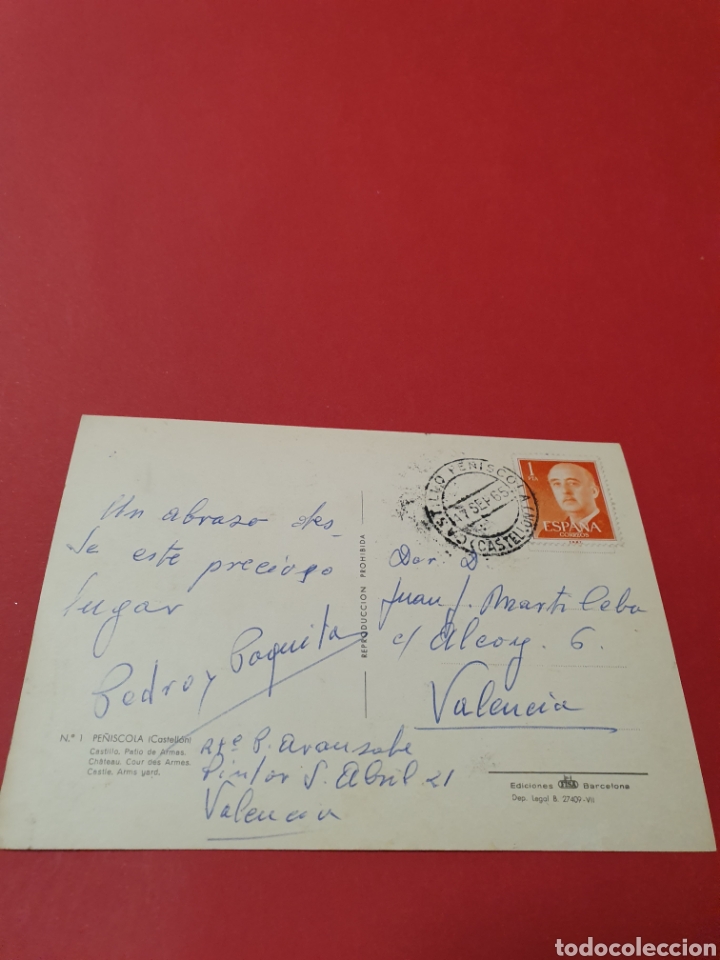 Un abrazo des-
de este precioso
lugar
Pedro y Paquita
Nº 1 PEÑISCOLA (Castellón)
Castillo. Patio de Armas.
Château. Cour des Armes.
Castle. Arms yard.
Rte P.
Pintor S. Abril 21
Valencia
REPRODUCCION PROHIBIDA
CASTILLO PEÑISCOLA
17 SEP 65
(CASTELLON)
1
PTA
ESPAÑA
CORREOS
D.
Juan J. Marti
c/ Alcoy. 6.
Valencia
Ediciones Barcelona
Dep. Legal B. 27409-VII
todocoleccion